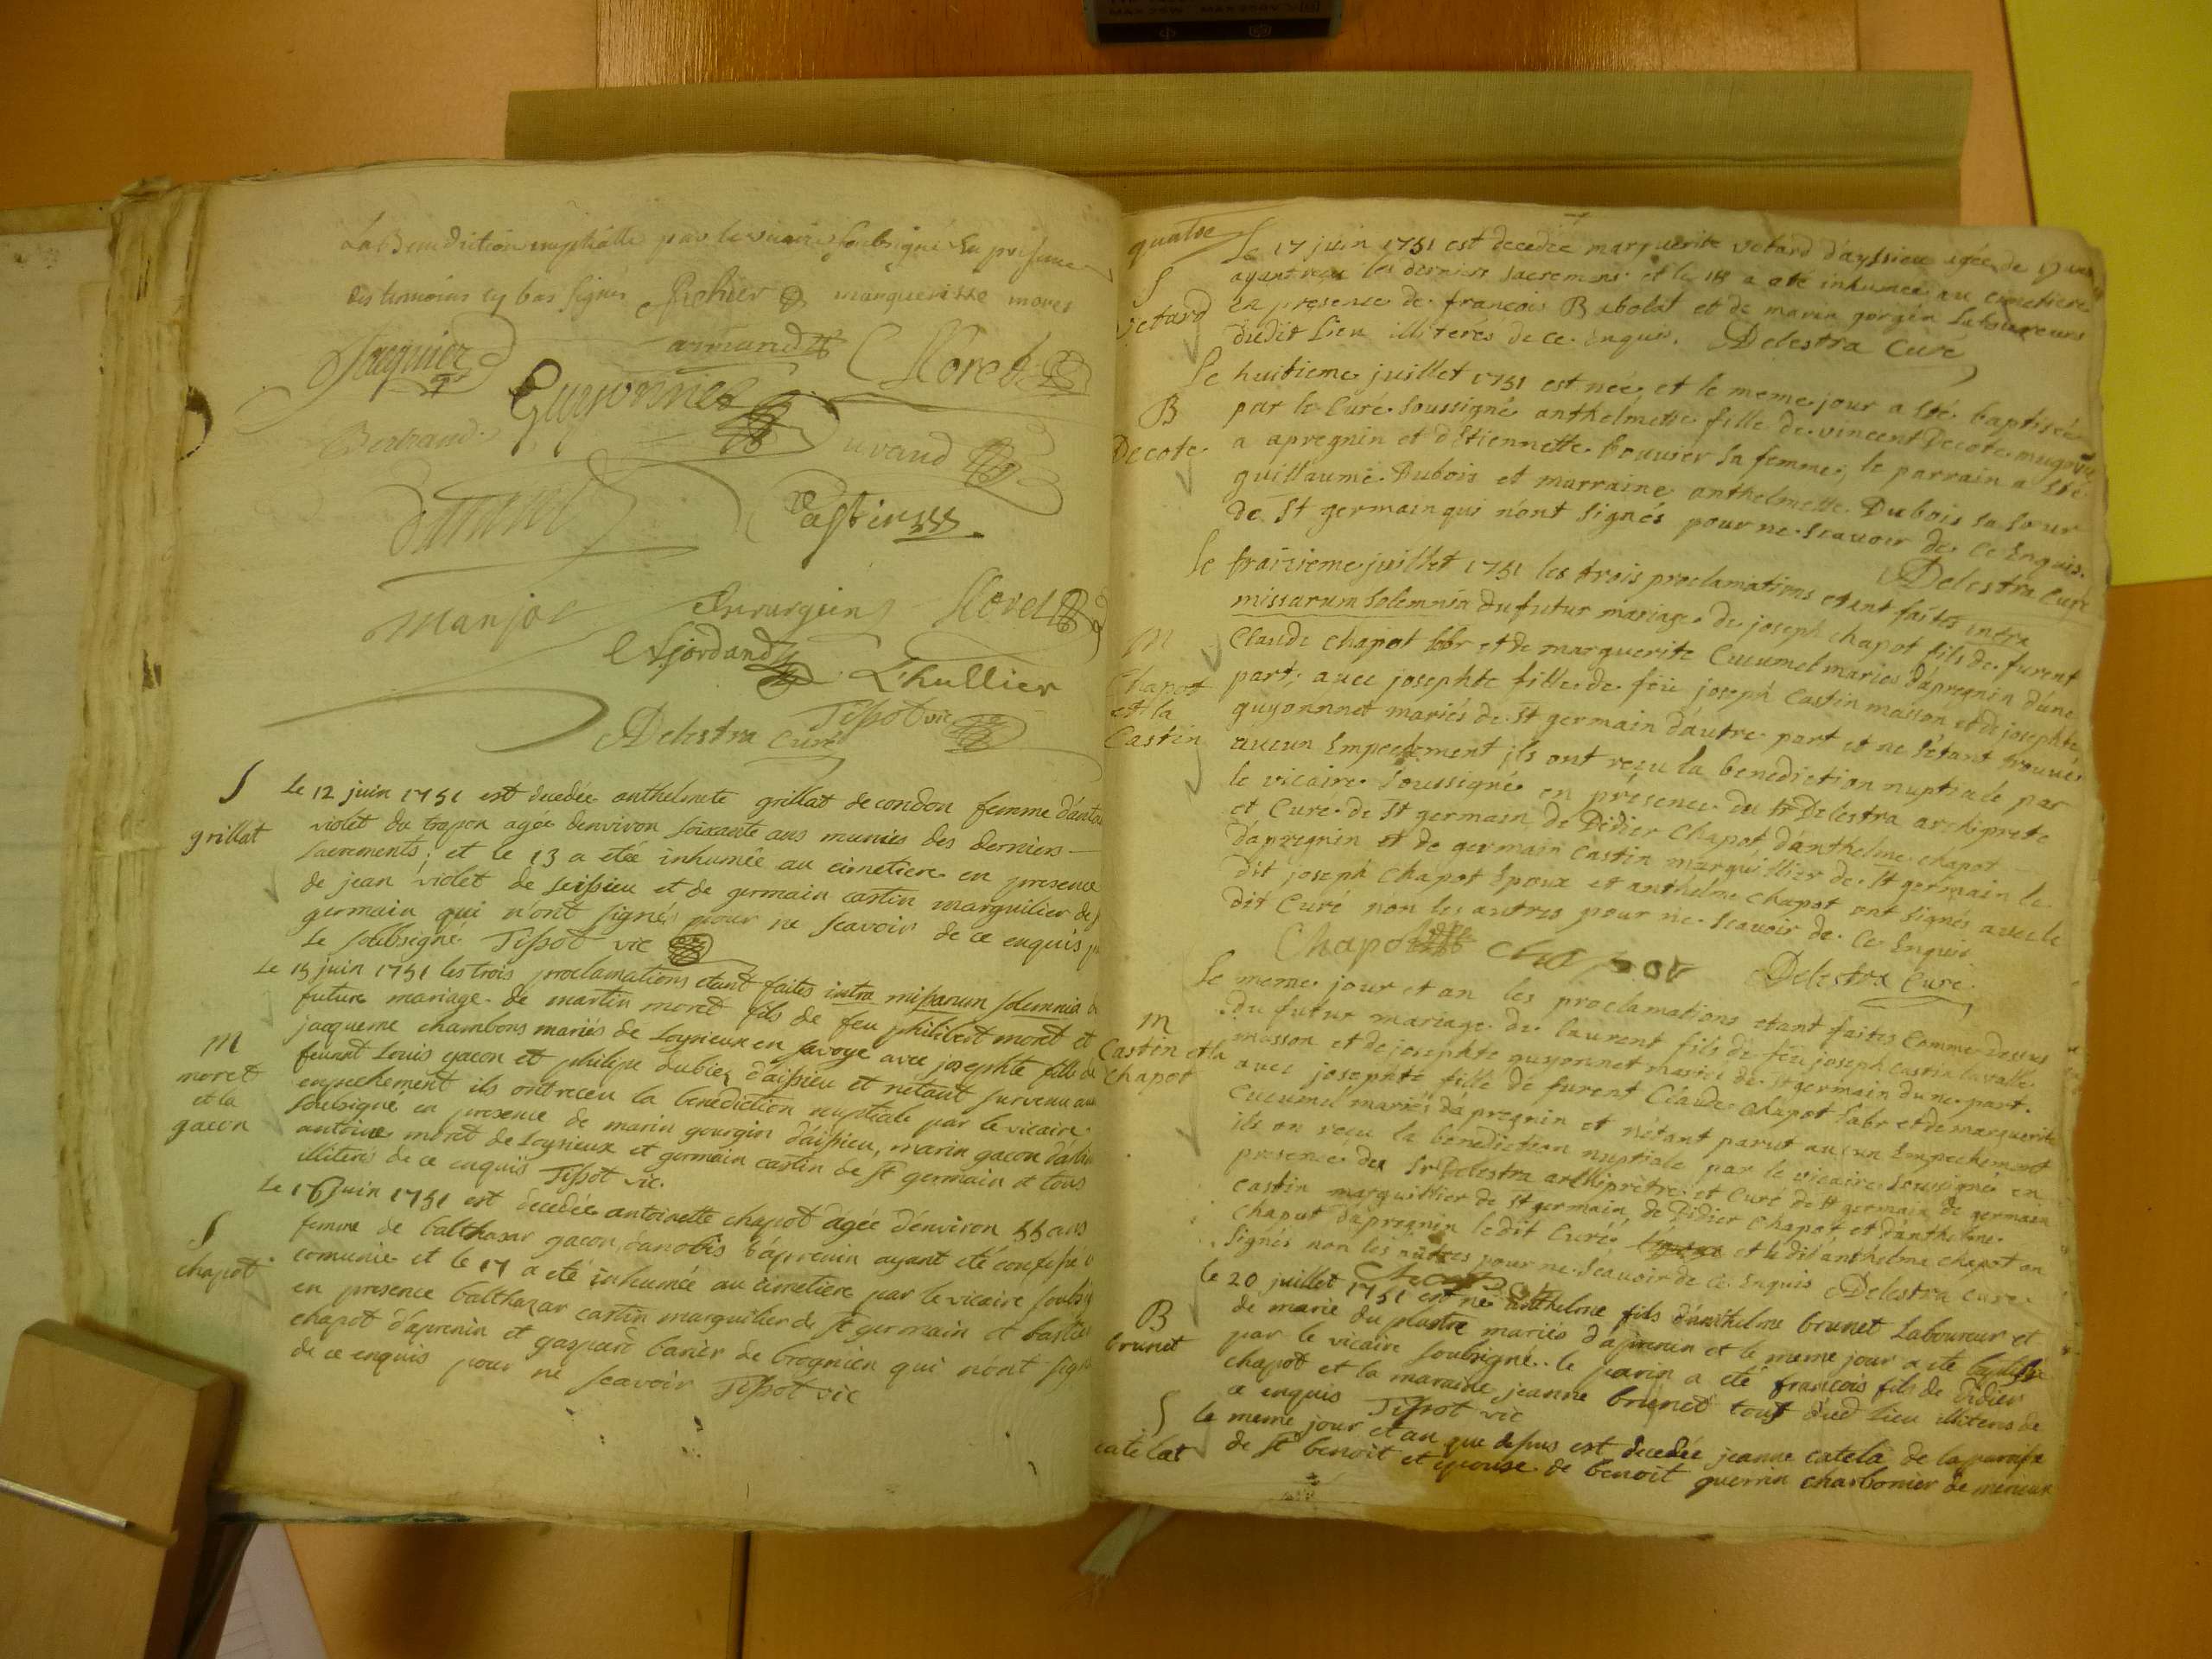 La Benediction nuptialle par le vicaire soubsigné en presence
des temoins cy bas signés Richier marguerisse moret
Jaquier armand C Moret
Bertrand Guyonnet Durand
Castin
manjot chirurgien Morel
Cl jordand Lhullier
Delestra Curé Tissot vic
S
grillat
Le 12 juin 1751 est decedée anthelmete grillat de condon femme d'antoi
violet du trapon agée denviron soixante ans munies des derniers
sacrements; et le 13 a etée inhumée au cimetiere en presence
de jean violet de seissieu et de germain castin marguilier de s
germain qui n'ont signés pour ne scavoir de ce enquis p
Le soubsigné Tissot vic
M
moret
et la
gacon
Le 15 juin 1751 les trois proclamations etant faites intra missarum solemnia d
future mariage de martin moret fils de feu philibert moret et
jacqueme chambons mariés de Loysieux en savoye avec josephte fille de
feurent Louis gacon et philipe dubiez d'aissieu et n'etant survenu auc
empechement ils ont receu la benediction nuptiale par le vicaire
soubsigné en presence de marin gourgin d'aissieu, marin gacon d'aissi
antoine moret de Loysieux et germain castin de St germain et tous
illiterés de ce enquis Tissot vic.
S
chapot
Le 16 juin 1751 est decedée antoinette chapot agée d'environ 55 ans
femme de balthasar gacon danobis d'áprenin ayant eté confessé
comunie et le 17 a eté inhumée au cimetiere par le vicaire soubsig
en presence balthazar castin marguilier de St germain et bastie
chapot d'aprenin et gaspard banier de brognien qui n'ont sign
de ce enquis pour ne scavoir Tissot vic
quatre
S
vetard
Le 17 juin 1751 est decedée marguerite vetard d'ayssieu agée de 17 ans
ayant reçu les derniers sacremens et le 18 a eté inhumée au cimetiere
en presence de francois Babolat et de marin gorgin Laboureurs
dudit Lieu illiterés de ce enquis. Delestra Curé
B
Decote
Le huitieme juillet 1751 est née et le meme jour a eté baptisée
par le Curé soussigné anthelmette fille de vincent Decote
a apregnin et d'Etiennette bouvier sa femme, le parrain a eté
guillaume Dubois et marraine anthelmette Dubois sa sœur
de St germain qui n'ont signés pour ne scavoir de ce Enquis.
Delestra Curé
M
Chapot
et la
Castin
Le traizieme juillet 1751 les trois proclamations etant faites intra
missarum solemnia du futur mariage de joseph chapot fils de furent
Claude chapot labr et de marguerite Cucumel mariés d'apregnin d'une
part, avec josephte fille de feu joseph Castin masson et de josephte
guyonnnet mariés de St germain d'autre part et ne s'etant trouvés
aucun Empechement ils ont reçu la benediction nuptiale par
le vicaire soussigné en présence du Sr Delestra archiprete
et Cure de St germain de Didier Chapot d'anthelme chapot
d'apregnin et de germain Castin marguillier de St germain le
dit joseph Chapot Epoux et anthelme chapot ont signés avec le
dit Curé non les autres pour ne scavoir de Ce Enquis
Chapot Chapot Delestra Curé
M
Castin et la
Chapot
Le meme jour et an les proclamations etant faites Comme dessus
du futur mariage de laurent fils de feu joseph Castin
masson et de josephte guyonnet mariés de St germain dune part.
avec josephte fille de furent Claude Chapot labr et de marguerite
Cucumel mariés d'apregnin et n'étant parut aucun Empechement
ils on reçu la benediction nuptiale par le vicaire soussigné en
presence du Sr Delestra archiprêtre et Curé de St germain de germain
Castin marguillier de St germain de Didier Chapot et d'anthelme
Chaput d'apregnin le dit Curé, et le dit anthelme chapot on
signés non les autres pour ne scavoir de ce Enquis Delestra Curé
Chapot
B
brunet
Le 20 juillet 1751 est né anthelme fils d'anthelme brunet Laboureur et
de marie du plastre mariés d'aprenin et le meme jour a eté baptisé
par le vicaire soubsigné. le parin a eté francois fils de Didier
chapot et la maraine jeanne brunet tous dud Lieu illiterés de
ce enquis Tissot vic
S
catelat
Le meme jour et an que dessus est decedée jeanne catela de la paroisse
de St benoit et epouse de benoit guerrin charbonier de merieux